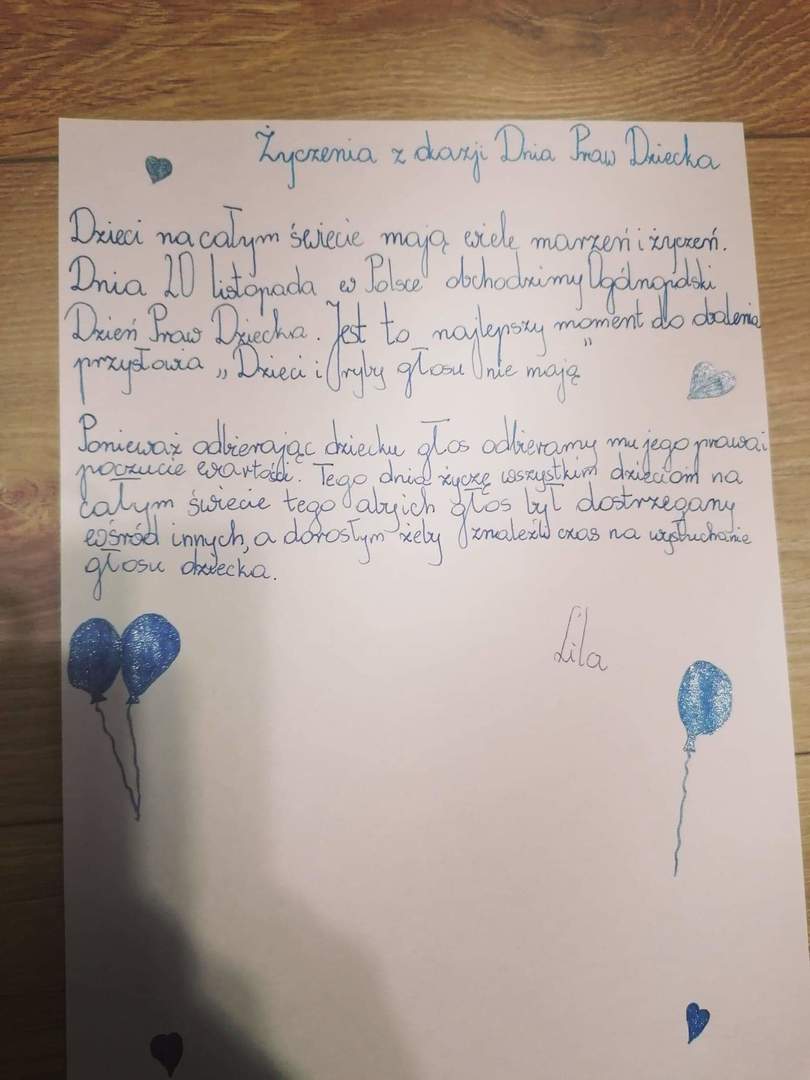 Życzenia z okazji Dnia Praw Dziecka
Dzieci na całym świecie mają wiele marzeń i życzeń.
Dnia 20 listopada w Polsce obchodzimy Ogólnopolski
Dzień Praw Dziecka. Jest to najlepszy moment do obalenia
przysłowia „Dzieci i ryby głosu nie mają”
Ponieważ odbierając dziecku głos odbieramy mu jego prawa i
poczucie wartości. Tego dnia życzę wszystkim dzieciom na
całym świecie tego aby ich głos był dostrzegany
wśród innych, a dorosłym żeby znaleźli czas na wysłuchanie
głosu dziecka.
Lila